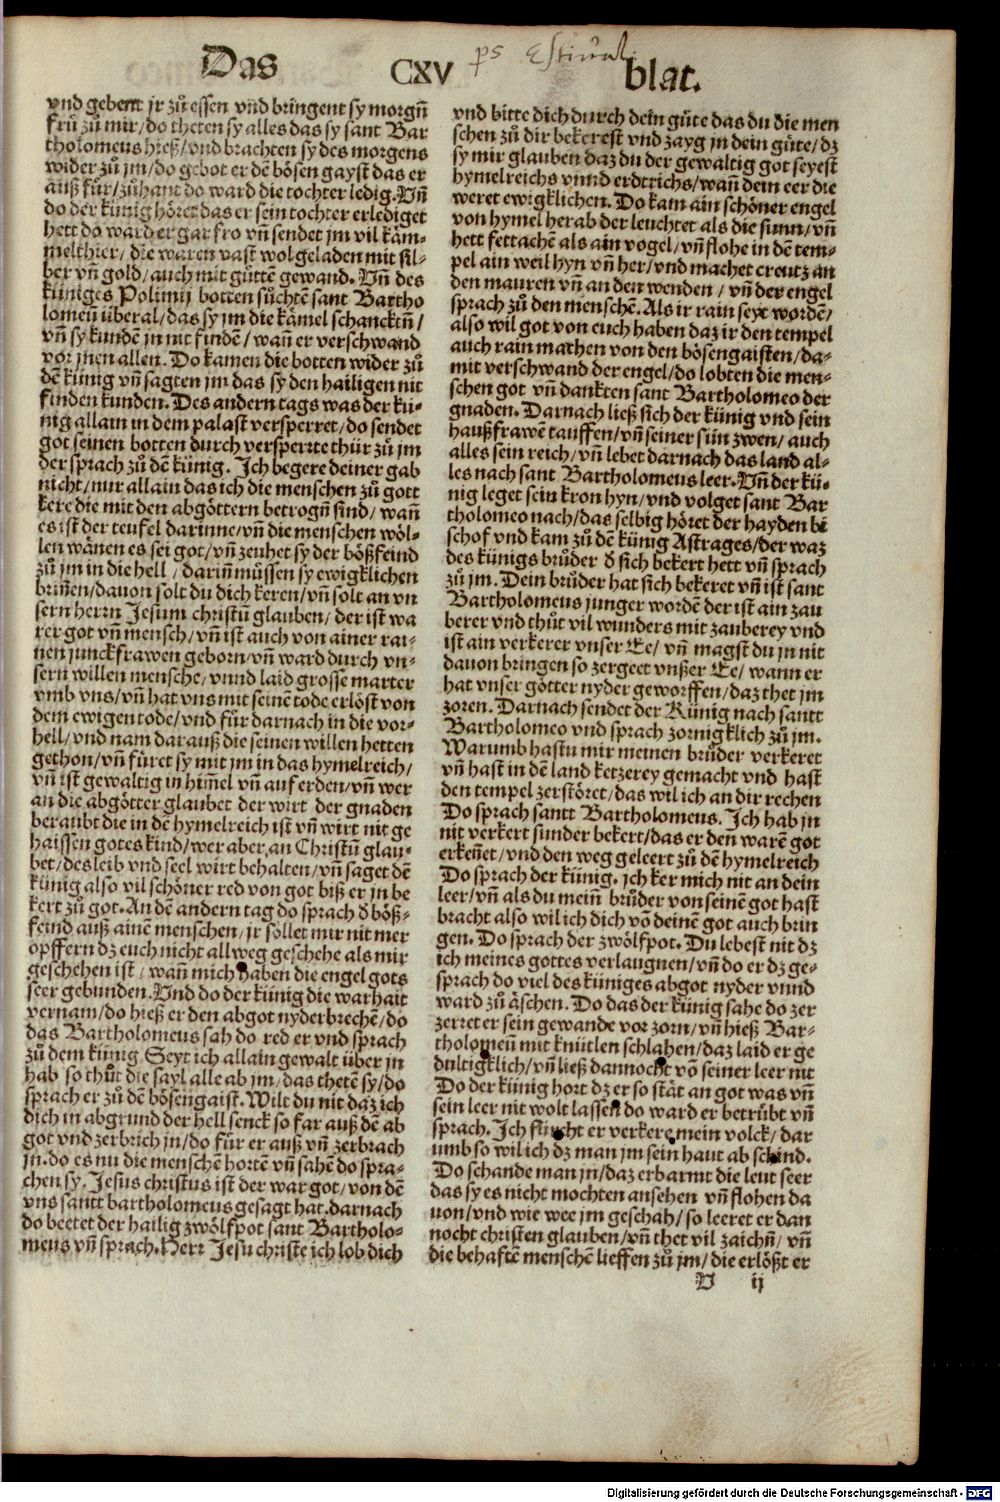 Das CXV blat.
ps Estiual
vnd gebent jr zuͦ essen vnd bringent sy morgn̄
fruͤ zuͦ mir/do theten sy alles das sy sant Bar
tholomeus hieß/vnd brachten sy des morgens
wider zuͦ jm/do gebot er dē bösen gayst das er
auß für/zuͦhant do ward die tochter ledig.Vn̄
do der künig höret das er sein tochter erlediget
hett do ward er gar fro vn̄ sendet jm vil käm-
melthier/ die waren vast wolgeladen mit sil-
ber vn̄ gold/auch mit guͤttē gewand.Vn̄ des
küniges Polimij botten suͦchtē sant Bartho
lomeū überal/das sy jm die kämel schancktn̄/
vn̄ sy kundē jn nit findē/ wan̄ er verschwand
vor jnen allen. Do kamen die botten wider zuͦ
dē künig vn̄ sagten jm das sy den hailigen nit
finden kunden. Des andern tags was der kü-
nig allain in dem palast versperret/do sendet
got seinen botten durch versperrte thür zuͦ jm
der sprach zuͦ dē künig. Ich begere deiner gab
nicht/nur allain das ich die menschen zuͦ gott
kere die mit den abgöttern betrogn̄ sind/wan̄
es ist der teufel darinne/vn̄ die menschen wöl-
len wänen es sei got/vn̄ zeuhet sy der bößfeind
zuͦ jm in die hell/ darin̄ muͤssen sy ewigklichen
brin̄en/dauon solt du dich keren/vn̄ solt an vn
sern herrn̄ Jesum christū glauben/ der ist wa
rer got vn̄ mensch/vn̄ ist auch von ainer rai-
nen junckfrawen geborn/vn̄ ward durch vn-
sern willen mensche/vnnd laid grosse marter
vmb vns/vn̄ hat vns mit seinē tode erlöst von
dem ewigen tode/vnd für darnach in die vor-
hell/vnd nam darauß die seinen willen hetten
gethon/vn̄ fůret sy mit jm in das hymelreich/
vn̄ ist gewaltig in him̄el vn̄ auf erden/vn̄ wer
an die abgötter glaubet der wirt der gnaden
beraubt die in dē hymelreich ist vn̄ wirt nit ge
haissen gotes kind/wer aber an Christū glau-
bet/des leib vnd seel wirt behalten/vn̄ saget dē
künig also vil schöner red von got biß er jn be
kert zuͦ got.An dē andern tag do sprach d̕ böß-
feind auß ainē menschen/jr söllet mir nit mer
opffern dz euch nicht allweg geschehe als mir
geschehen ist/ wan̄ mich haben die engel gots
seer gebunden.Vnd do der künig die warhait
vernam/do hieß er den abgot nyderbrechē/do
das Bartholomeus sah do red er vnd sprach
zuͦ dem künig Seyt ich allain gewalt über jn
hab so thuͦt die sayl alle ab jm/das thetē sy/do
sprach er zuͦ dē bösengaist.Wilt du nit daz ich
dich in abgrund der hell senck so far auß dē ab
got vnd zerbrich jn/do für er auß vn̄ zerbrach
jn.do es nu die menschē hortē vn̄ sahē do spra-
chen sy. Jesus christus ist der war got/von dē
vns santt bartholomeus gesagt hat.darnach
do beetet der hailig zwölfpot sant Bartholo-
meus vn̄ sprach.Herr Jesu christe ich lob dich
vnd bitte dich durch dein guͤte das du die men
schen zuͦ dir bekerest vnd zayg jn dein guͤte/dz
sy mir glauben daz du der gewaltig got seyest
hymelreichs vnnd erdtrichs/wan̄ dein eer die
weret ewigklichen. Do kam ain schöner engel
von hymel herab der leuchtet als die sunn/vn̄
hett fettachē als ain vogel/vn̄ flohe in dē tem-
pel ain weil hyn vn̄ her/vnd machet creutz an
den mauren vn̄ an den wenden / vn̄ der engel
sprach zuͦ den menschē.Als ir rain seyt wordē/
also wil got von euch haben daz ir den tempel
auch rain machen von den bösengaisten/da-
mit verschwand der engel/do lobten die men-
schen got vn̄ danckten sant Bartholomeo der
gnaden. Darnach ließ sich der künig vnd sein
haußfrawē tauffen/vn̄ seiner sün zwen/ auch
alles sein reich/vn̄ lebet darnach das land al-
les nach sant Bartholomeus leer.Vn̄ der kü-
nig leget sein kron hyn/vnd volget sant Bar
tholomeo nach/das selbig höret der hayden bi
schof vnd kam zuͦ dē künig Astrages/der waz
des künigs bruͦder d̕ sich bekert hett vn̄ sprach
zuͦ jm. Dein bruͦder hat sich bekeret vn̄ ist sant
Bartholomeus junger wordē der ist ain zau
berer vnd thuͦt vil wunders mit zauberey vnd
ist ain verkerer vnser Ee/ vn̄ magst du jn nit
dauon bringen so zergeet vnßer Ee/ wann er
hat vnser götter nyder geworffen/daz thet jm
zoren. Darnach sendet der Künig nach santt
Bartholomeo vnd sprach zornigklich zuͦ jm.
Warumb hastu mir meinen bruͦder verkeret
vn̄ hast in dē land ketzerey gemacht vnd hast
den tempel zerstöret/das wil ich an dir rechen
Do sprach santt Bartholomeus. Ich hab jn
nit verkert sunder bekert/das er den warē got
erken̄et/vnd den weg geleert zuͦ dē hymelreich
Do sprach der künig. ich ker mich nit an dein
leer/vn̄ als du mein̄ bruͦder von seinē got hast
bracht also wil ich dich vō deinē got auch brin
gen. Do sprach der zwölfpot. Du lebest nit dz
ich meines gottes verlaugnen/vn̄ do er dz ge-
sprach do viel des küniges abgot nyder vnnd
ward zuͦ äschen. Do das der künig sahe do zer
zerret er sein gewande vor zorn/vn̄ hieß Bar-
tholomeū mit knütlen schlahen/daz laid er ge
dultigklich/vn̄ ließ dannocht vō seiner leer nit
Do der künig hort dz er so stät an got was vn̄
sein leer nit wolt lassen do ward er betruͤbt vn̄
sprach. Ich fürcht er verkere mein volck/ dar
umb so wil ich dz man jm sein haut ab schind.
Do schande man jn/daz erbarmt die leut seer
das sy es nicht mochten ansehen vn̄ flohen da
uon/vnd wie wee jm geschah/so leeret er dan
nocht christen glauben/vn̄ thet vil zaichn̄/ vn̄
die behaftē menschē lieffen zuͦ jm/die erlößt er
V ij
Digitalisierung gefördert durch die Deutsche Forschungsgemeinschaft - DFG